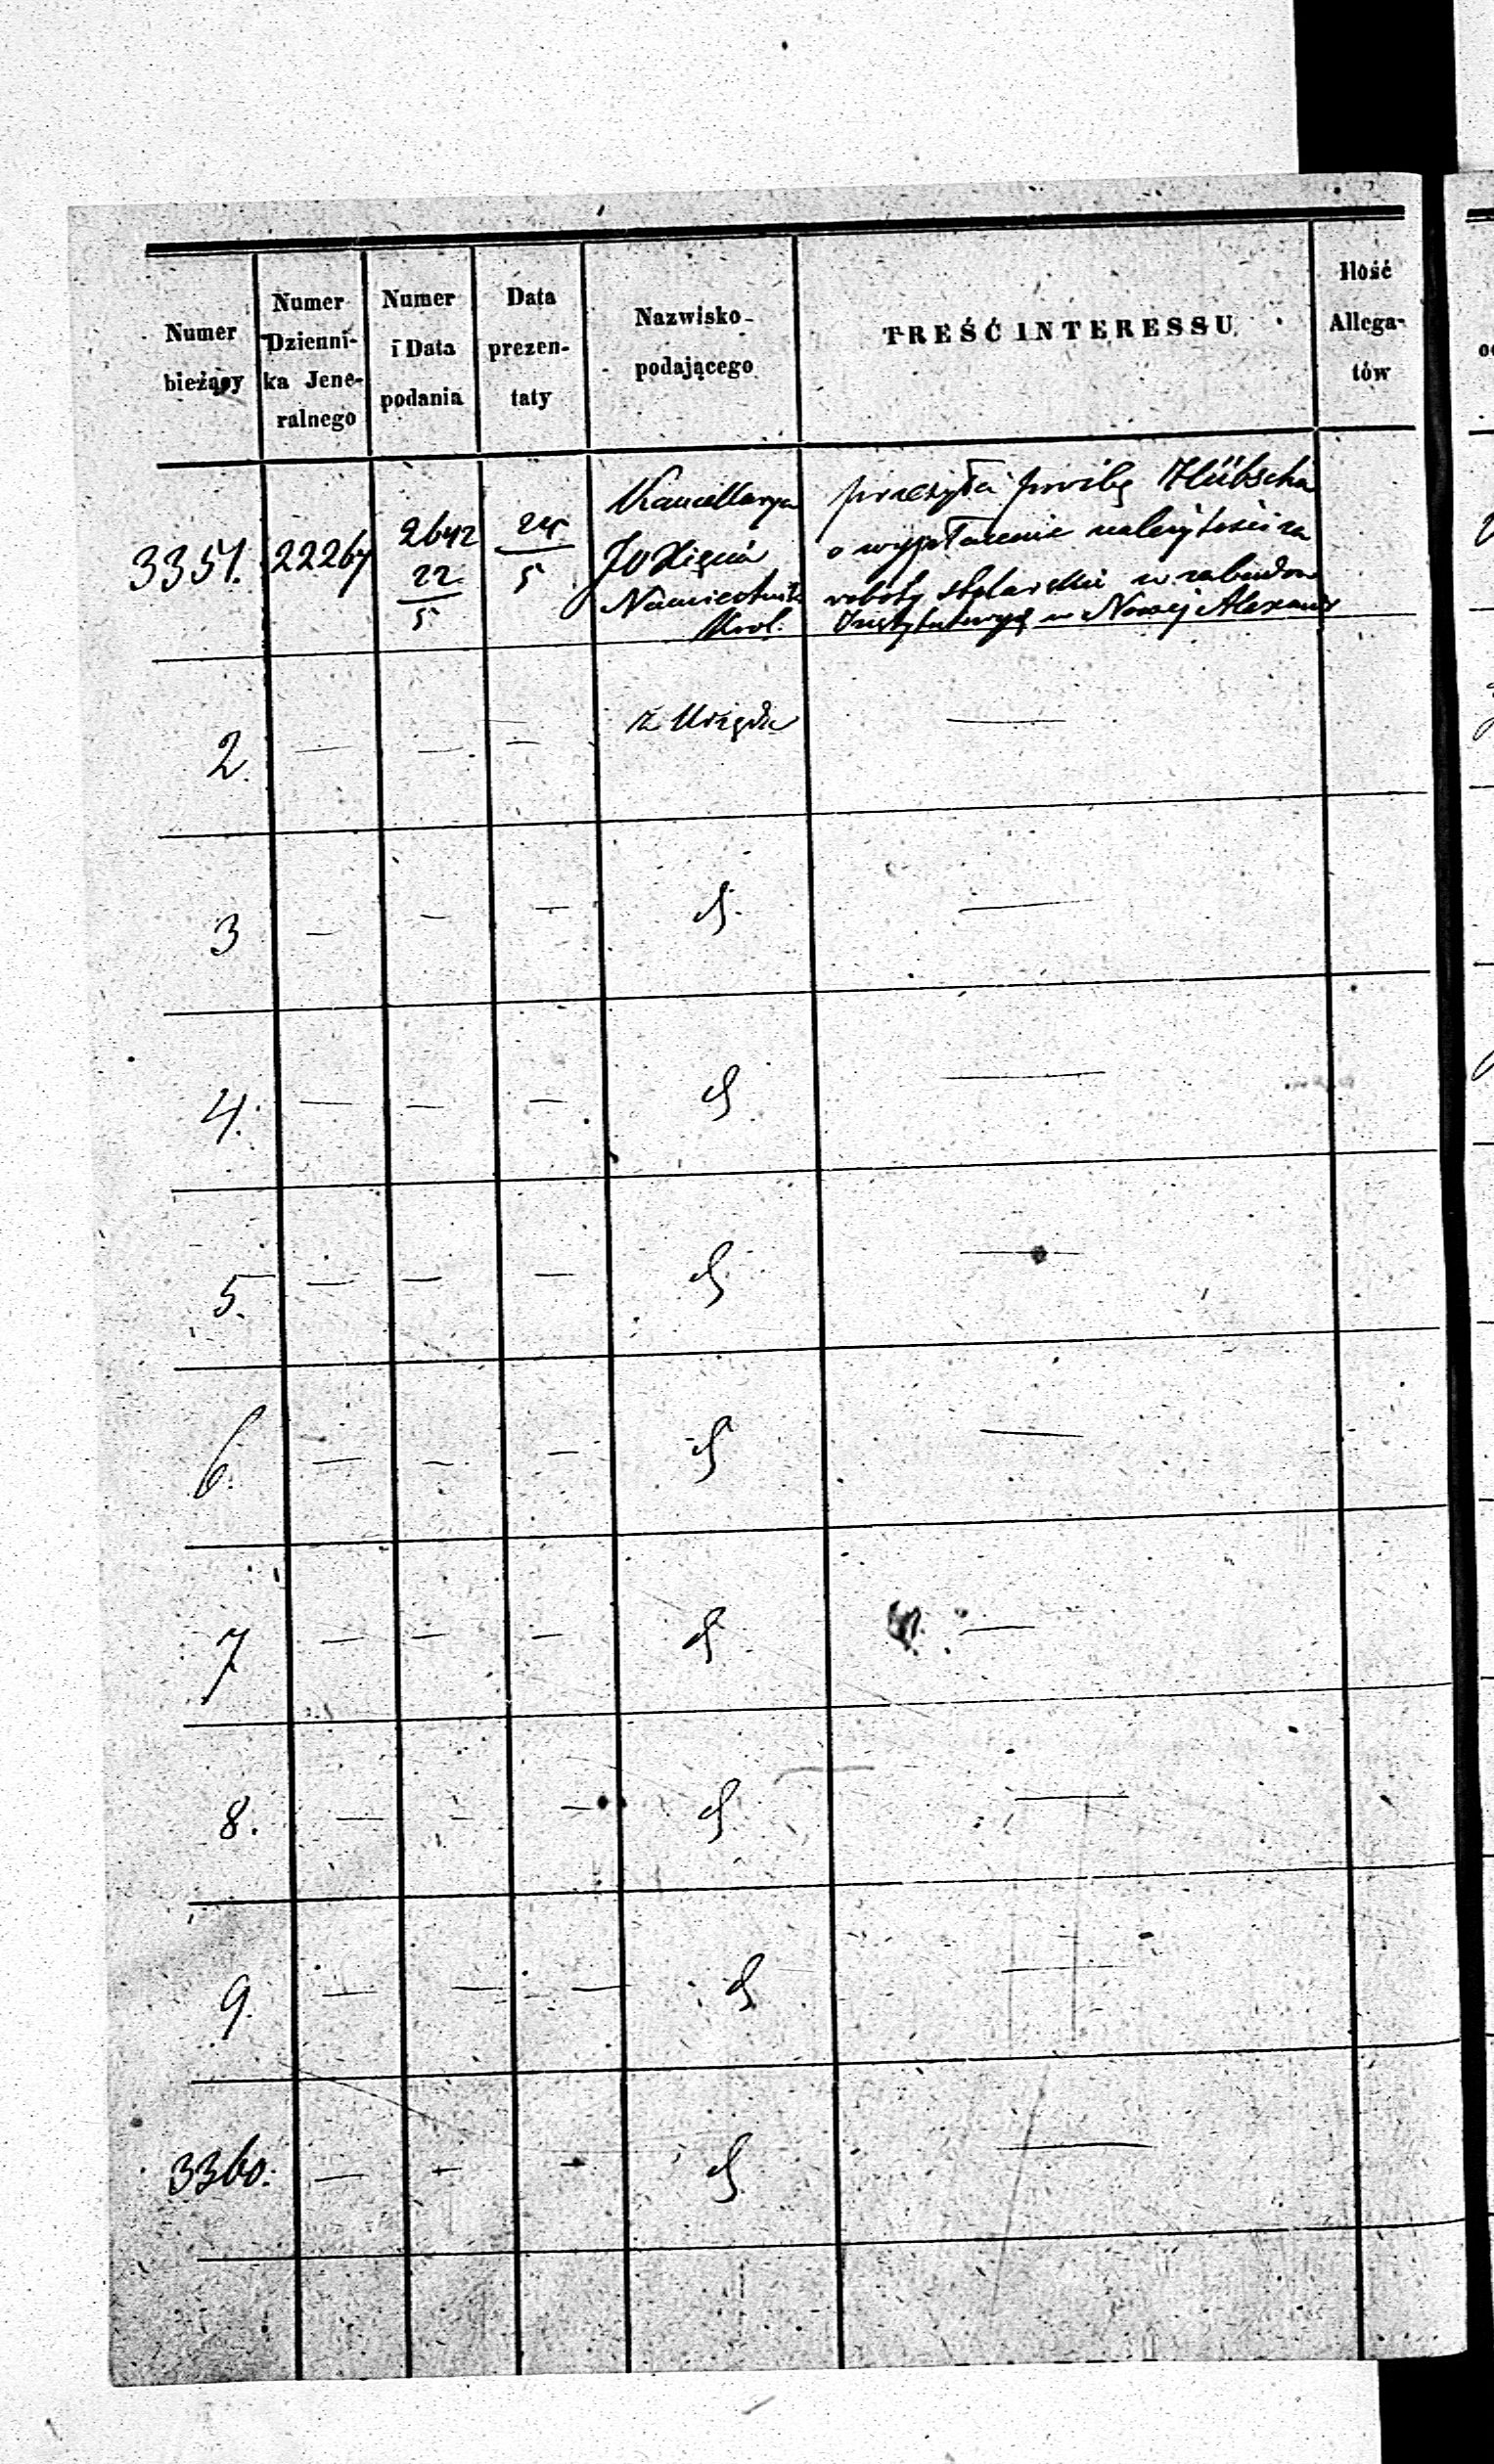 Numer bieżący | Numer Dzienni- ka Jene- ralnego | Numer i Data podania | Data prezen- taty | Nazwisko podającego | TREŚĆ INTERESSU | Ilość Allega- tów
3351. | 22267 | 2642 22/5 | 24/5 | Kancellarya JO Xięcia Namiestnika Król. | przesyła prośbę Hübscha
o wypłacenie należytości za
roboty stolarskie w zabudow
Instytutowych w Nowej Alexandr
2. | — | — | — | z Urzędu | —
3 | — | — | — | d | —
4. | — | — | — | d | —
5. | — | — | — | d | —
6. | — | — | — | d | —
7 | — | — | — | d | —
8. | — | — | — | d | —
9. | — | — | — | d | —
3360. | — | — | — | d | —